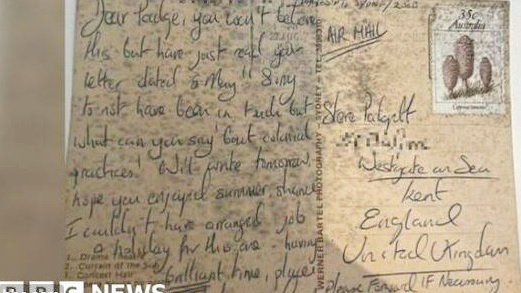 Dear Padge, you won't believe
this but have just read your
letter dated 5 May!! Sorry
to not have been in touch but
what can you say 'bout colonial
practices! Will write tomorrow,
hope you enjoyed summer, shame
I couldn't have arranged job
a holiday for this one - having
brilliant time,
1... Drama Theatre
2. Curtain of the Sun
3. Concert Hall
WERNER BARTEL PHOTOGRAPHY SYDNEY
AIR MAIL
35c
Australia
Steve Padgett
Westgate on Sea
Kent
England
United Kingdom
Please Forward IF Necessary
BBC NEWS